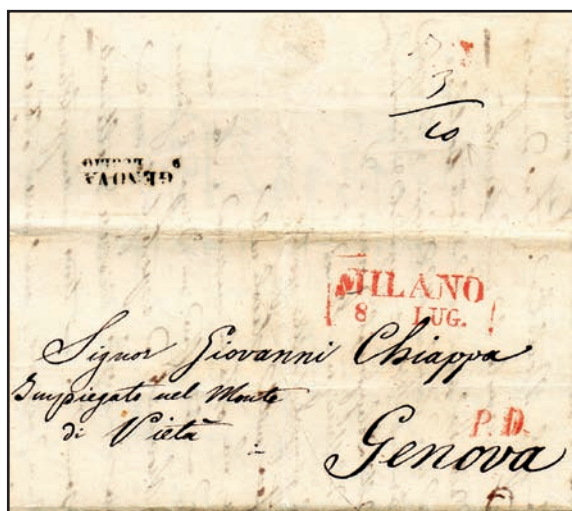 3
10
GENOVA
9 LUGLIO
MILANO
8 LUG.
Signor Giovanni Chiappa
Impiegato nel Monte
di Pietà
P.D.
Genova